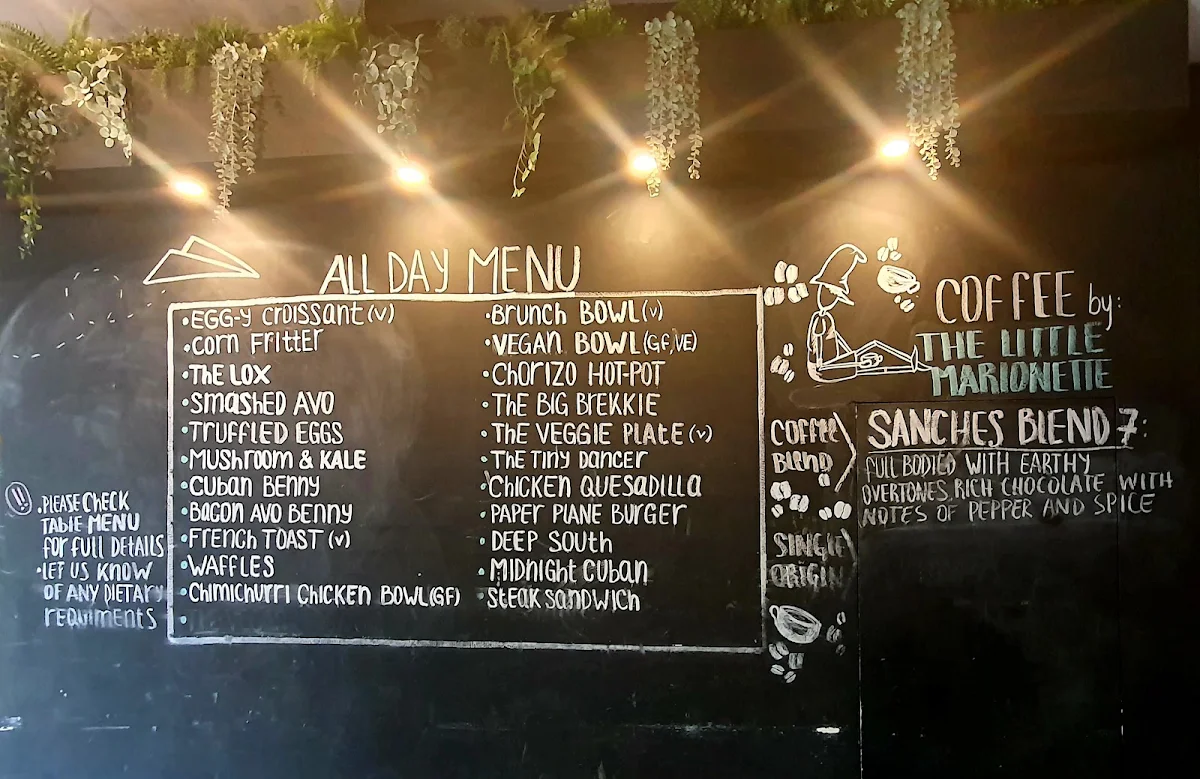 ALL DAY MENU
• EGG-Y CROISSANT (V)
• CORN FRITTER
• THE LOX
• SMASHED AVO
• TRUFFLED EGGS
• MUSHROOM & KALE
• CUBAN BENNY
• BACON AVO BENNY
• FRENCH TOAST (V)
• WAFFLES
• CHIMICHURRI CHICKEN BOWL (GF)
•
• BRUNCH BOWL (V)
• VEGAN BOWL (GF, VE)
• CHORIZO HOT-POT
• THE BIG BREKKIE
• THE VEGGIE PLATE (V)
• THE TINY DANCER
• CHICKEN QUESADILLA
• PAPER PLANE BURGER
• DEEP SOUTH
• MIDNIGHT CUBAN
• STEAK SANDWICH
!!
• PLEASE CHECK
TABLE MENU
FOR FULL DETAILS
• LET US KNOW
OF ANY DIETARY
REQUIRMENTS
COFFEE by:
THE LITTLE
MARIONETTE
COFFEE
BLEND
SANCHES BLEND 7:
FULL BODIED WITH EARTHY
OVERTONES, RICH CHOCOLATE WITH
NOTES OF PEPPER AND SPICE
SINGLE
ORIGIN